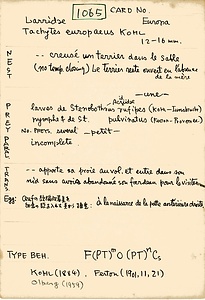 1065 CARD No.
Larridae Europa
Tachytes europaeus KOHL
12-16 mm.
NEST
-- creusé un terrier dans le sable
(no temp. closing) Le terrier reste ouvert en l'absence
de la mère
PREY
PARL.
— une —
Acridie
larves de Stenobothrus rufipes (Kohn-
nymphs & de St. pulvinatus (
No. PREYS. several -petit-
incomplete
TRANS.
-- apporte sa proie au vol, et entre dans son
nid sans avoir abandonné son fardeau pour le visiter
Egg: à la naissance de la patte antérieure droite,
TYPE BEH. F(PT)ᵐO(PT)ⁿCs
KOHL (1884) Ferton (1901, 11, 21)
Olberg (1959)